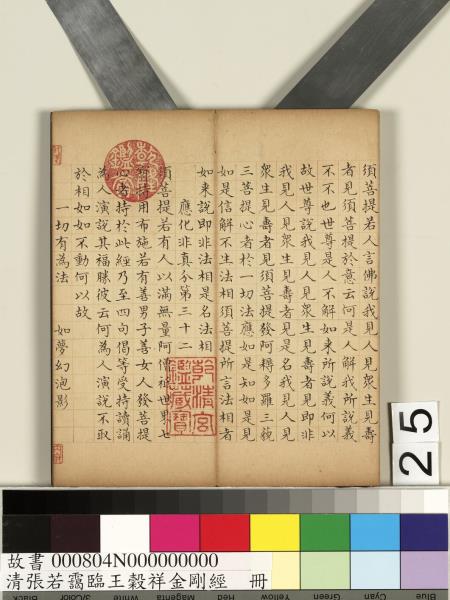 須菩提若人言佛說我見人見眾生見壽
者見須菩提於意云何是人解我所說義
不不也世尊是人不解如來所說義何以
故世尊說我見人見眾生見壽者見即非
我見人見眾生見壽者見是名我見人見
眾生見壽者見須菩提發阿耨多羅三藐
三菩提心者於一切法應如是知如是見
如是信解不生法相須菩提所言法相者
如來說即非法相是名法相
應化非真分第三十二
須菩提若有人以滿無量阿僧祇世界七
寶持用布施若有善男子善女人發菩提
心者持於此經乃至四句偈等受持讀誦
為人演說其福勝彼云何為人演說不取
於相如如不動何以故
一切有為法 如夢幻泡影
乾隆鑑賞
乾清宮鑑藏寶
25
故書 000804N000000000
清張若靄臨王穀祥金剛經 冊
Black 3/Color White Magenta Red Yellow Green Cyan Blue